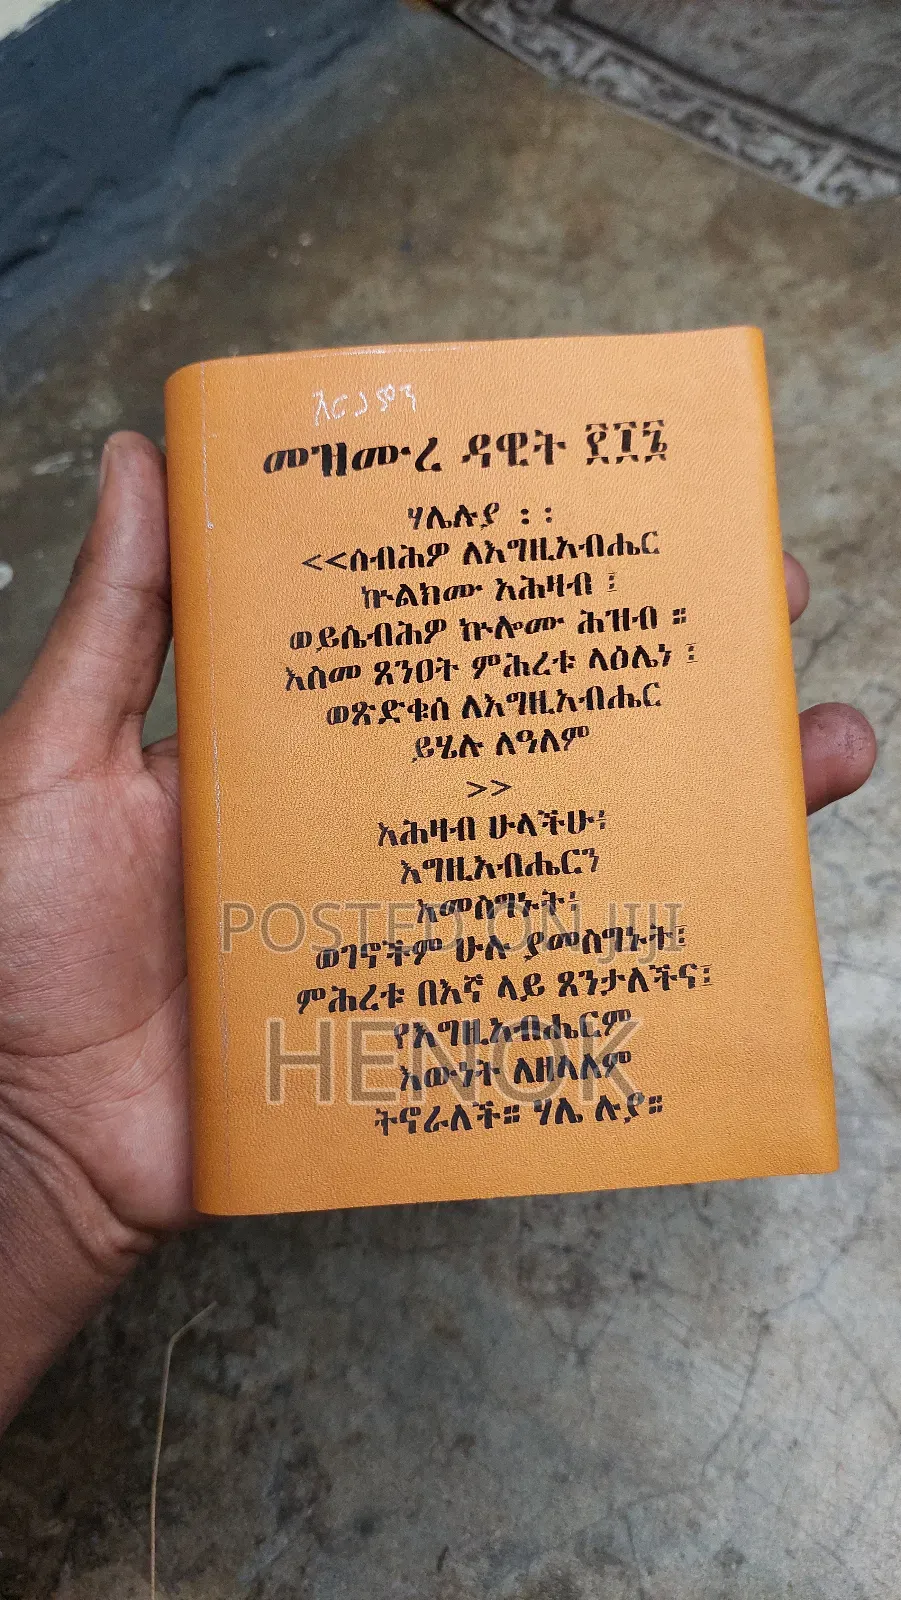 መዝሙረ ዳዊት ፻፲፮
ሃሌሉያ ፡ ፡
<<ሰብሕዎ ለእግዚአብሔር
ኵልክሙ አሕዛብ ፤
ወይሴብሕዎ ኵሎሙ ሕዝብ ።
እስመ ጸንዐት ምሕረቱ ላዕሌነ ፤
ወጽድቁሰ ለእግዚአብሔር
ይሄሉ ለዓለም
>>
አሕዛብ ሁላችሁ፥
እግዚአብሔርን
አመስግኑት፥
ወገኖችም ሁሉ ያመስግኑት፤
ምሕረቱ በእኛ ላይ ጸንታለችና፤
የእግዚአብሔርም
እውነት ለዘላለም
ትኖራለች። ሃሌ ሉያ።
POSTED ON JIJI
HENOK